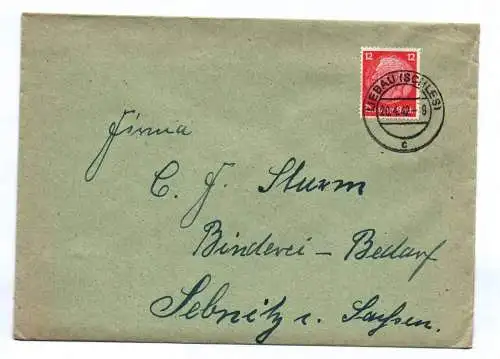 12 12
LIEBAU (SCHLES)
c
Firma
C. F. Sturm
Binderei - Bedarf
Sebnitz i. Sachsen.